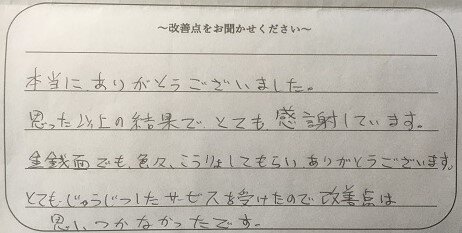 ～改善点をお聞かせください～
本当にありがとうございました。
思った以上の結果で、とても、感謝しています。
金銭面でも、色々、こうりょしてもらいありがとうございます。
とても、じゅうじつしたサービスを受けたので改善点は
思いつかなかったです。